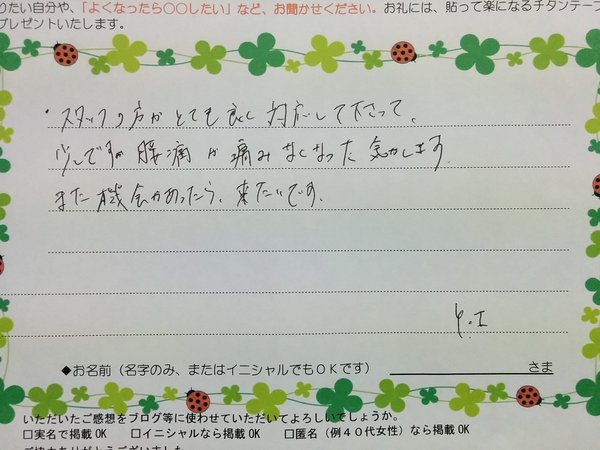 りたい自分や、「よくなったら〇〇したい」など、お聞かせください。お礼には、貼って楽になるチタンテープ
プレゼントいたします。
・スタッフの方がとても良く対応して下さって、
少しですが腰痛が痛みなくなった気がします。
また機会があったら、来たいです。
Y.I
◆お名前（名字のみ、またはイニシャルでもＯＫです） さま
いただいたご感想をブログ等に使わせていただいてよろしいでしょうか。
□実名で掲載 OK □イニシャルなら掲載 OK □匿名（例４０代女性）なら掲載 OK
ご協力ありがとうございました